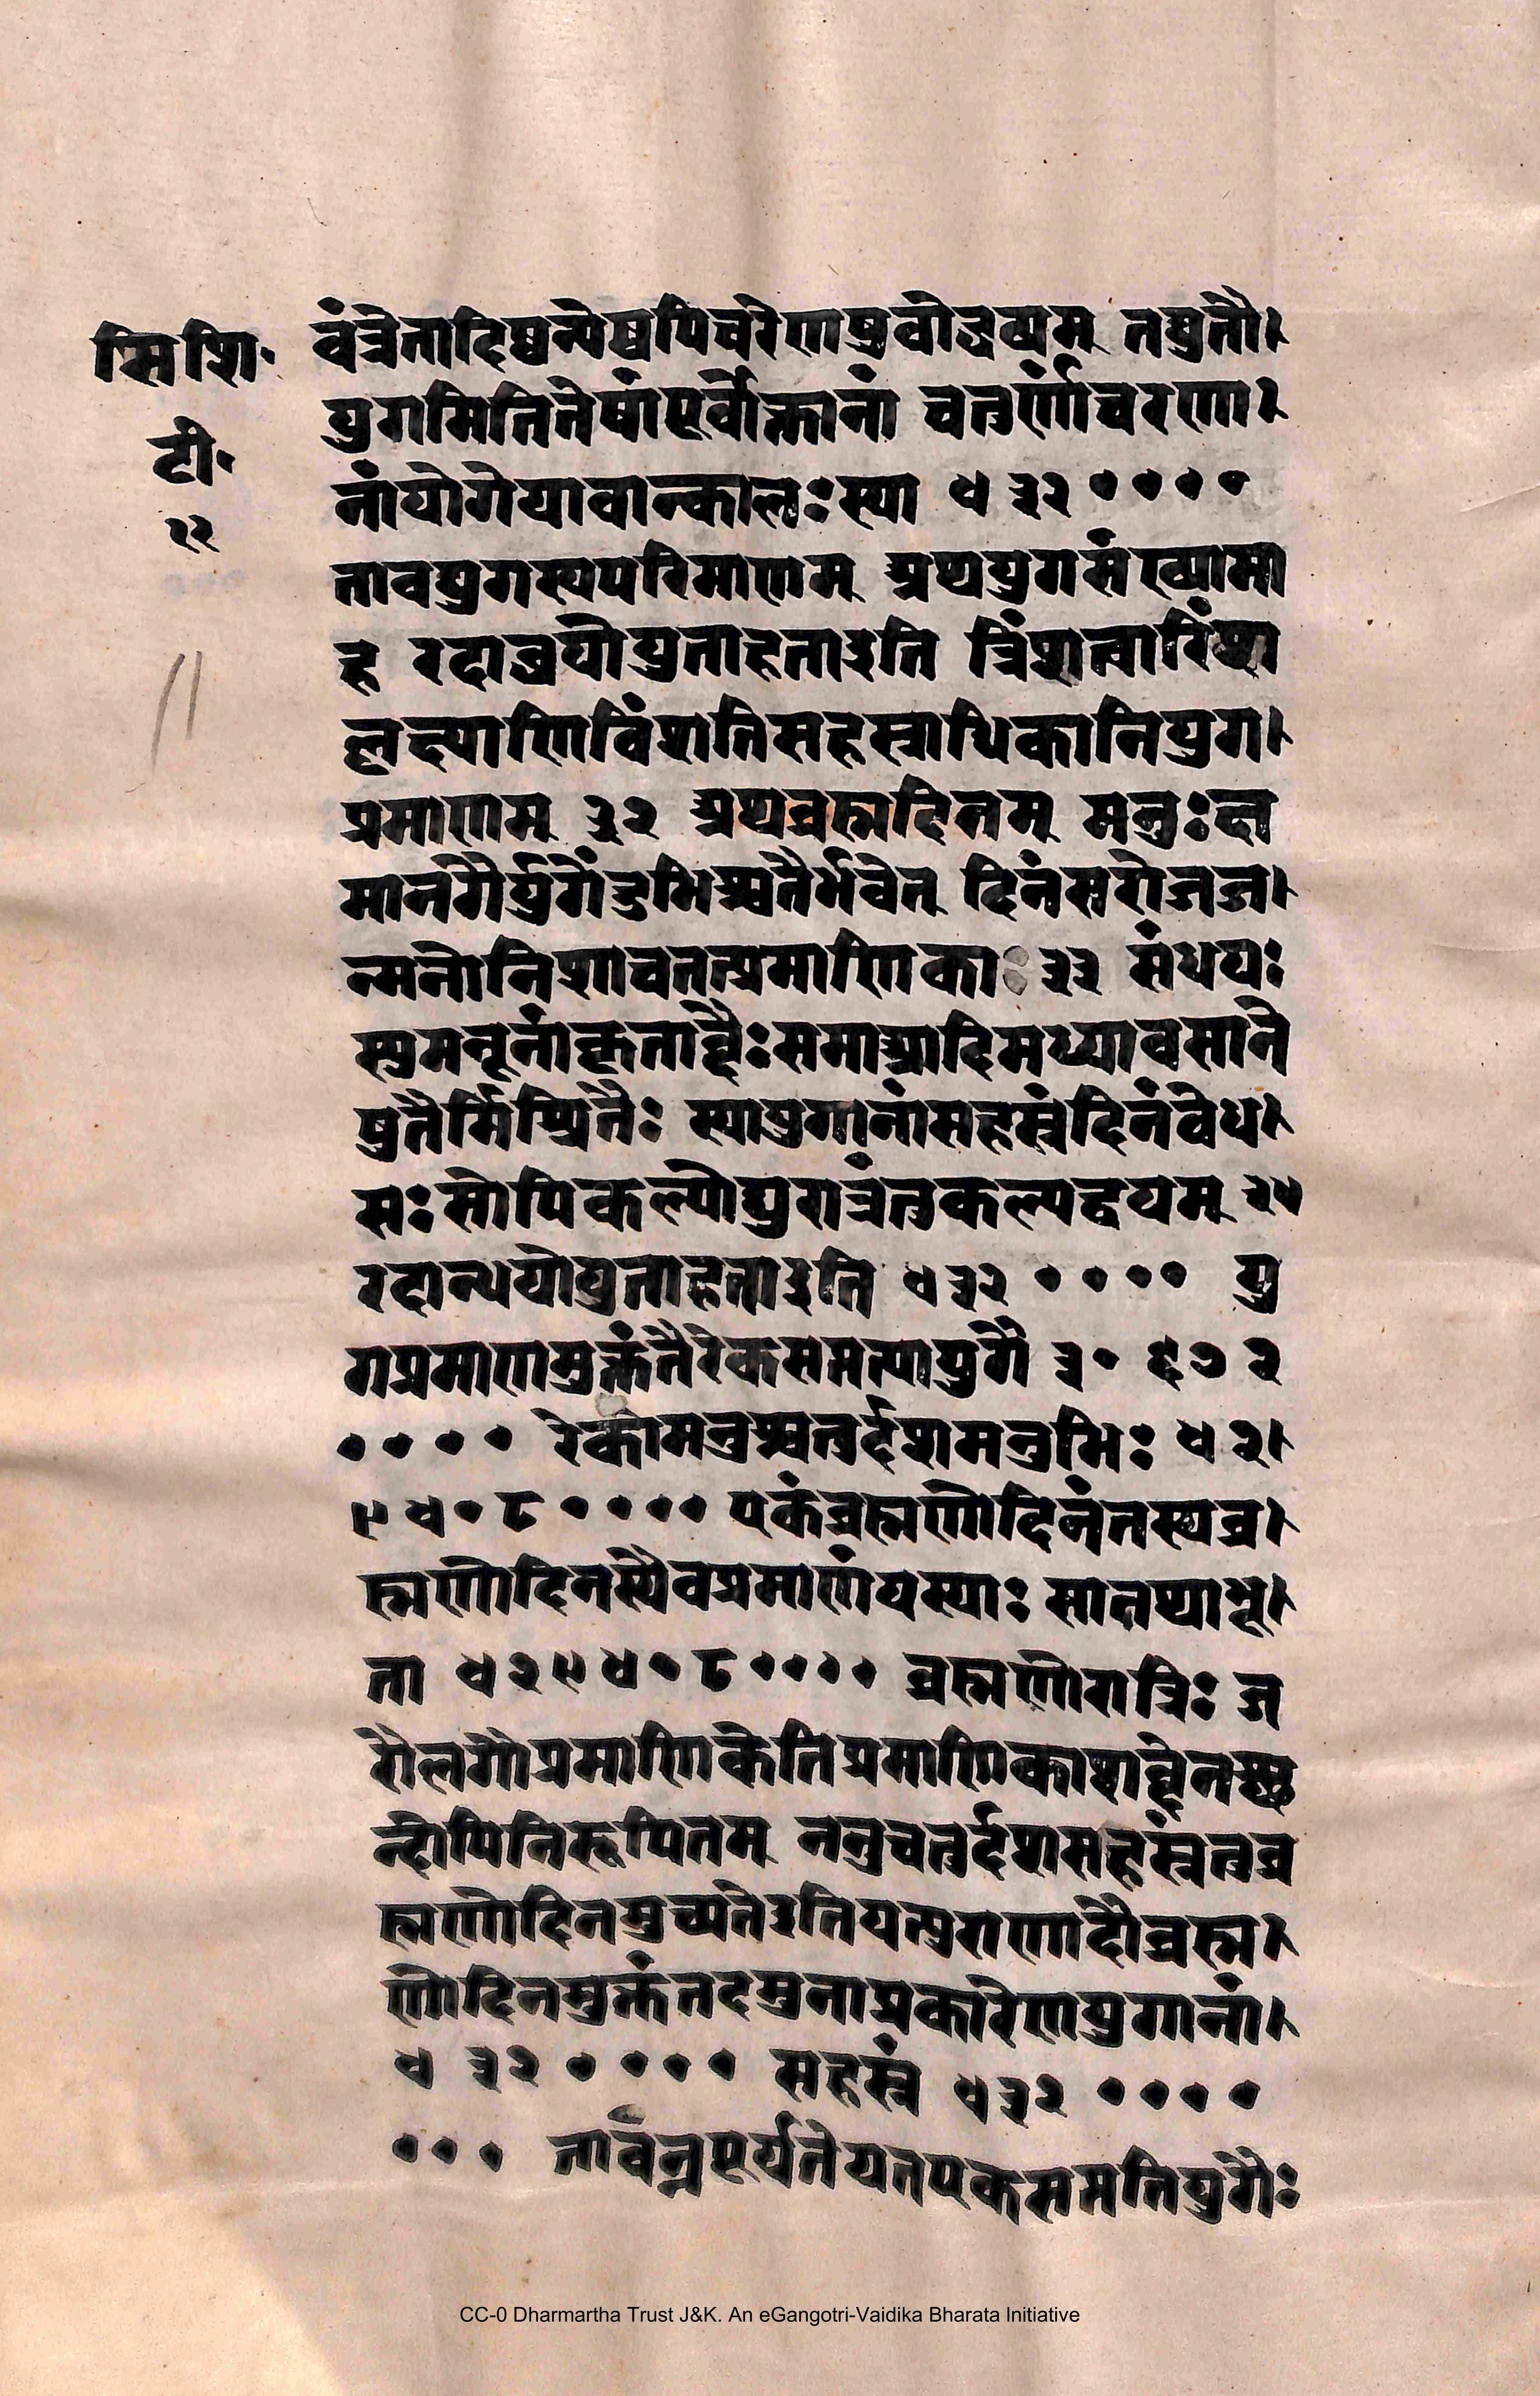 सिशि॰
टी॰
२२
वंत्रेतादिष्वन्येष्वपिचरेणप्रवोजव्यम् तद्युतौ।
युगमितितेषांपूर्वोक्तानां चतुर्णांचरणा।
नांयोगेयावान्कालःस्या ४३२००००
तावद्युगस्यपरिमाणम् अथयुगसंख्यामा
ह रदाब्धयोयुताहताइति त्रिंशत्वारिंशा
लक्ष्याणिविंशतिसहस्राधिकानियुग।
प्रमाणम् ३२ अथब्रह्मदिनम् मनुःक्ष
मानगैर्युगैंदुभिश्चतैर्भवेत् दिनंसरोजज।
न्मनोनिशावतत्प्रमाणिकाः ३३ संधयः
स्युमनूनांकृताब्दैःसमाआदिमध्यावसाने
षुतैर्मिश्रितैः स्याद्युगानांसहस्रंदिनंवेध।
सःसोपिकल्पोद्युरात्रंतुकल्पद्वयम् ३४
रदान्धयोयुताहताइति ४३२०००० यु
गप्रमाणमुक्तंतैरेकसप्तत्यायुगै ३०६७२
०००० रेकोमनुश्चतुर्दशमनुभिः ४२।
९४०८०००० एकंब्रह्मणोदिनंतस्यब्र।
ह्मणोदिनस्यैवप्रमाणंयस्याः सातथ्याभू।
ता ४२९४०८०००० ब्रह्मणोरात्रिः ज
रौलगौप्रमाणिकेतिप्रमाणिकाशब्देनछ
न्दोपिनिरूपितम् ननुचतुर्दशसहस्रंतुब्र
ह्मणोदिनमुच्यतेइतियत्पुराणादौब्रह्म।
णोदिनमुक्तंतदमुनाप्रकारेणयुगानां।
४३२०००० सहस्रं ४३२००००
००० तावन्नपूर्यतेयतएकसप्ततियुगैः
CC-0 Dharmartha Trust J&K. An eGangotri-Vaidika Bharata Initiative